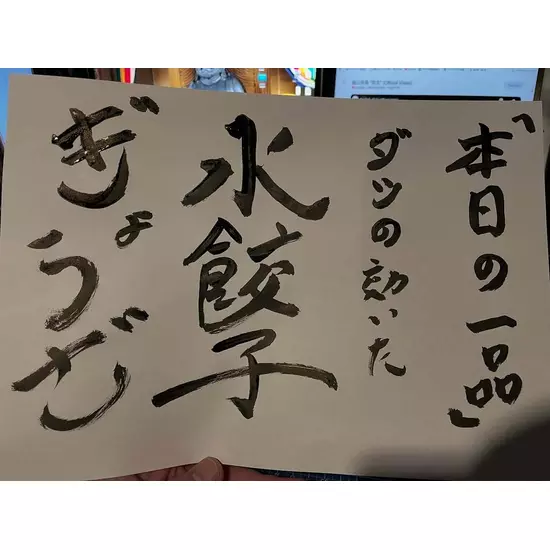 「本日の一品」
ダシの効いた
水餃子
ぎょうざ